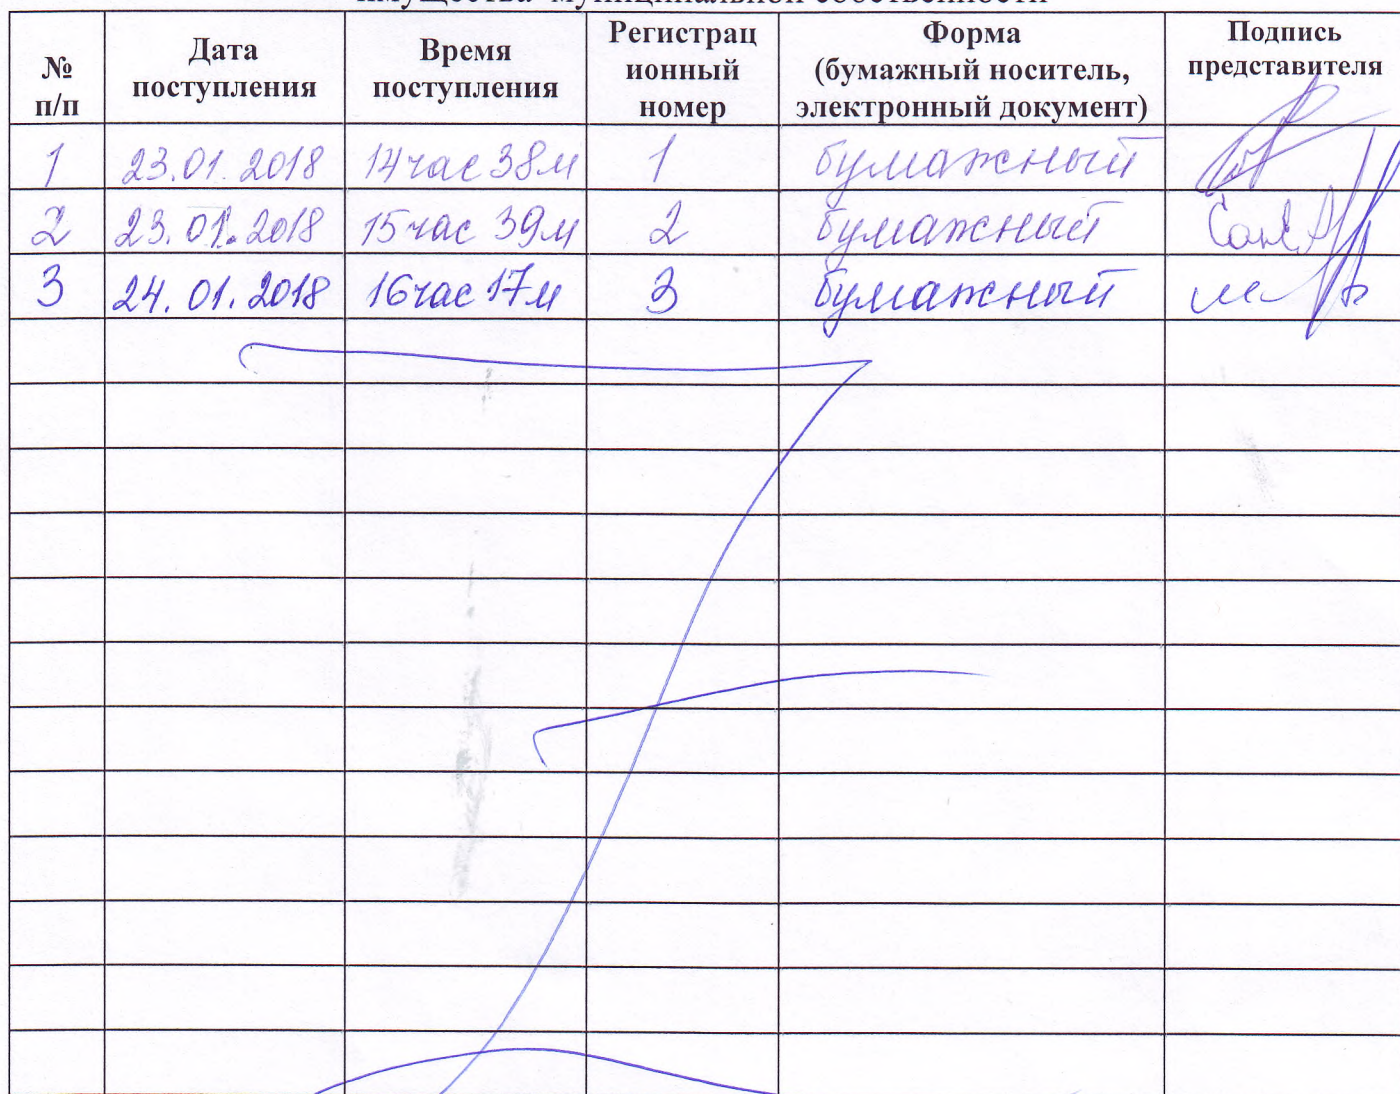 имущества муниципальной собственности
№ п/п Дата поступления Время поступления Регистрац ионный номер Форма (бумажный носитель, электронный документ) Подпись представителя
1 23.01.2018 14 час 38 м 1 бумажный
2 23.01.2018 15 час 39 м 2 бумажный
3 24.01.2018 16 час 17 м 3 бумажный